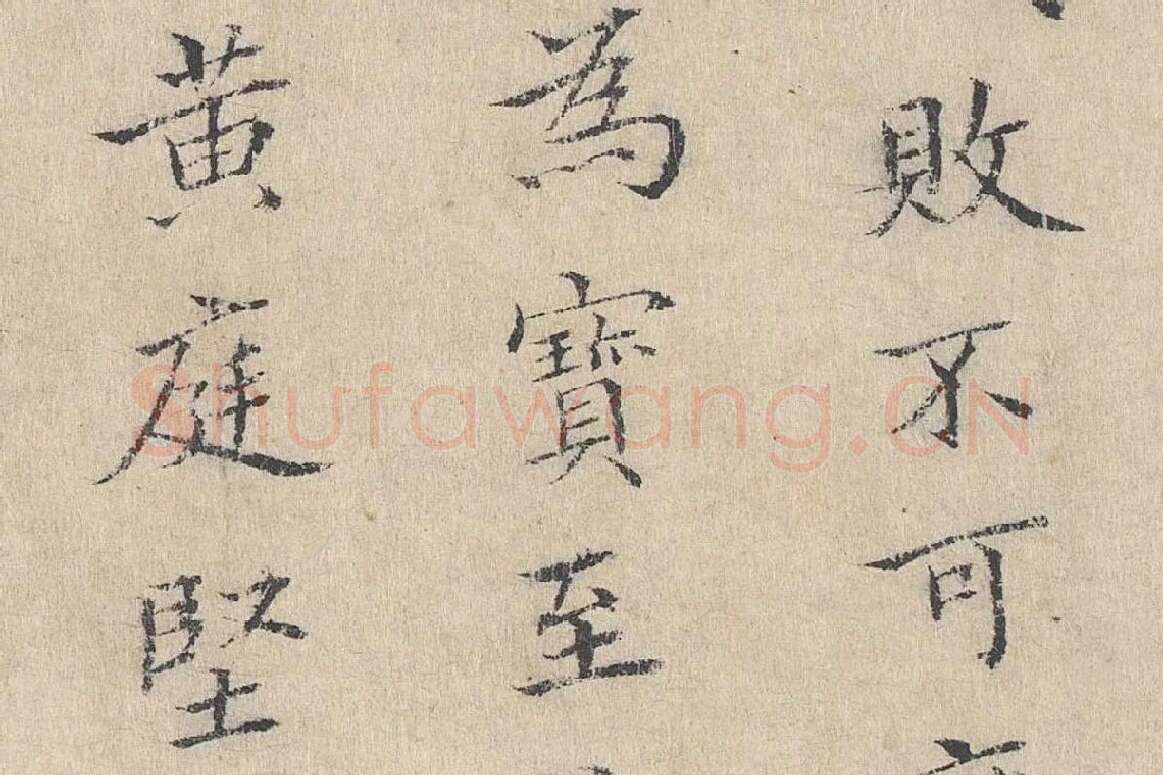 敗不可
為寶至
黄庭堅
Shufawang.CN